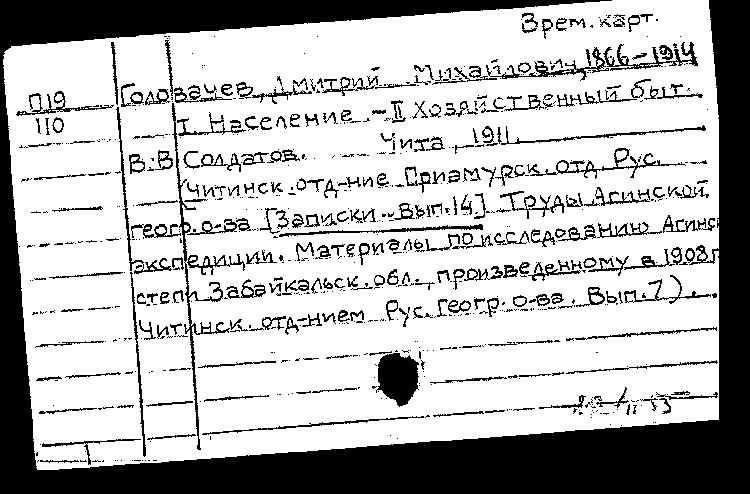 Врем. карт.
П19 Головачев, Дмитрий Михайлович, 1866-1914
110 I. Население. - II Хозяйственный быт.
В.: В Солдатов. Чита, 1911.
(Читинск. отд-ние Приамурск. отд. Рус.
геогр. о-ва [Записки.. Вып. 14] Труды Агинской
экспедиции. Материалы по исследованию Агинс
степи Забайкальск. обл., произведенному в 1908 г
Читинск. отд-нием Рус. Геогр. о-ва. Вып. 7).